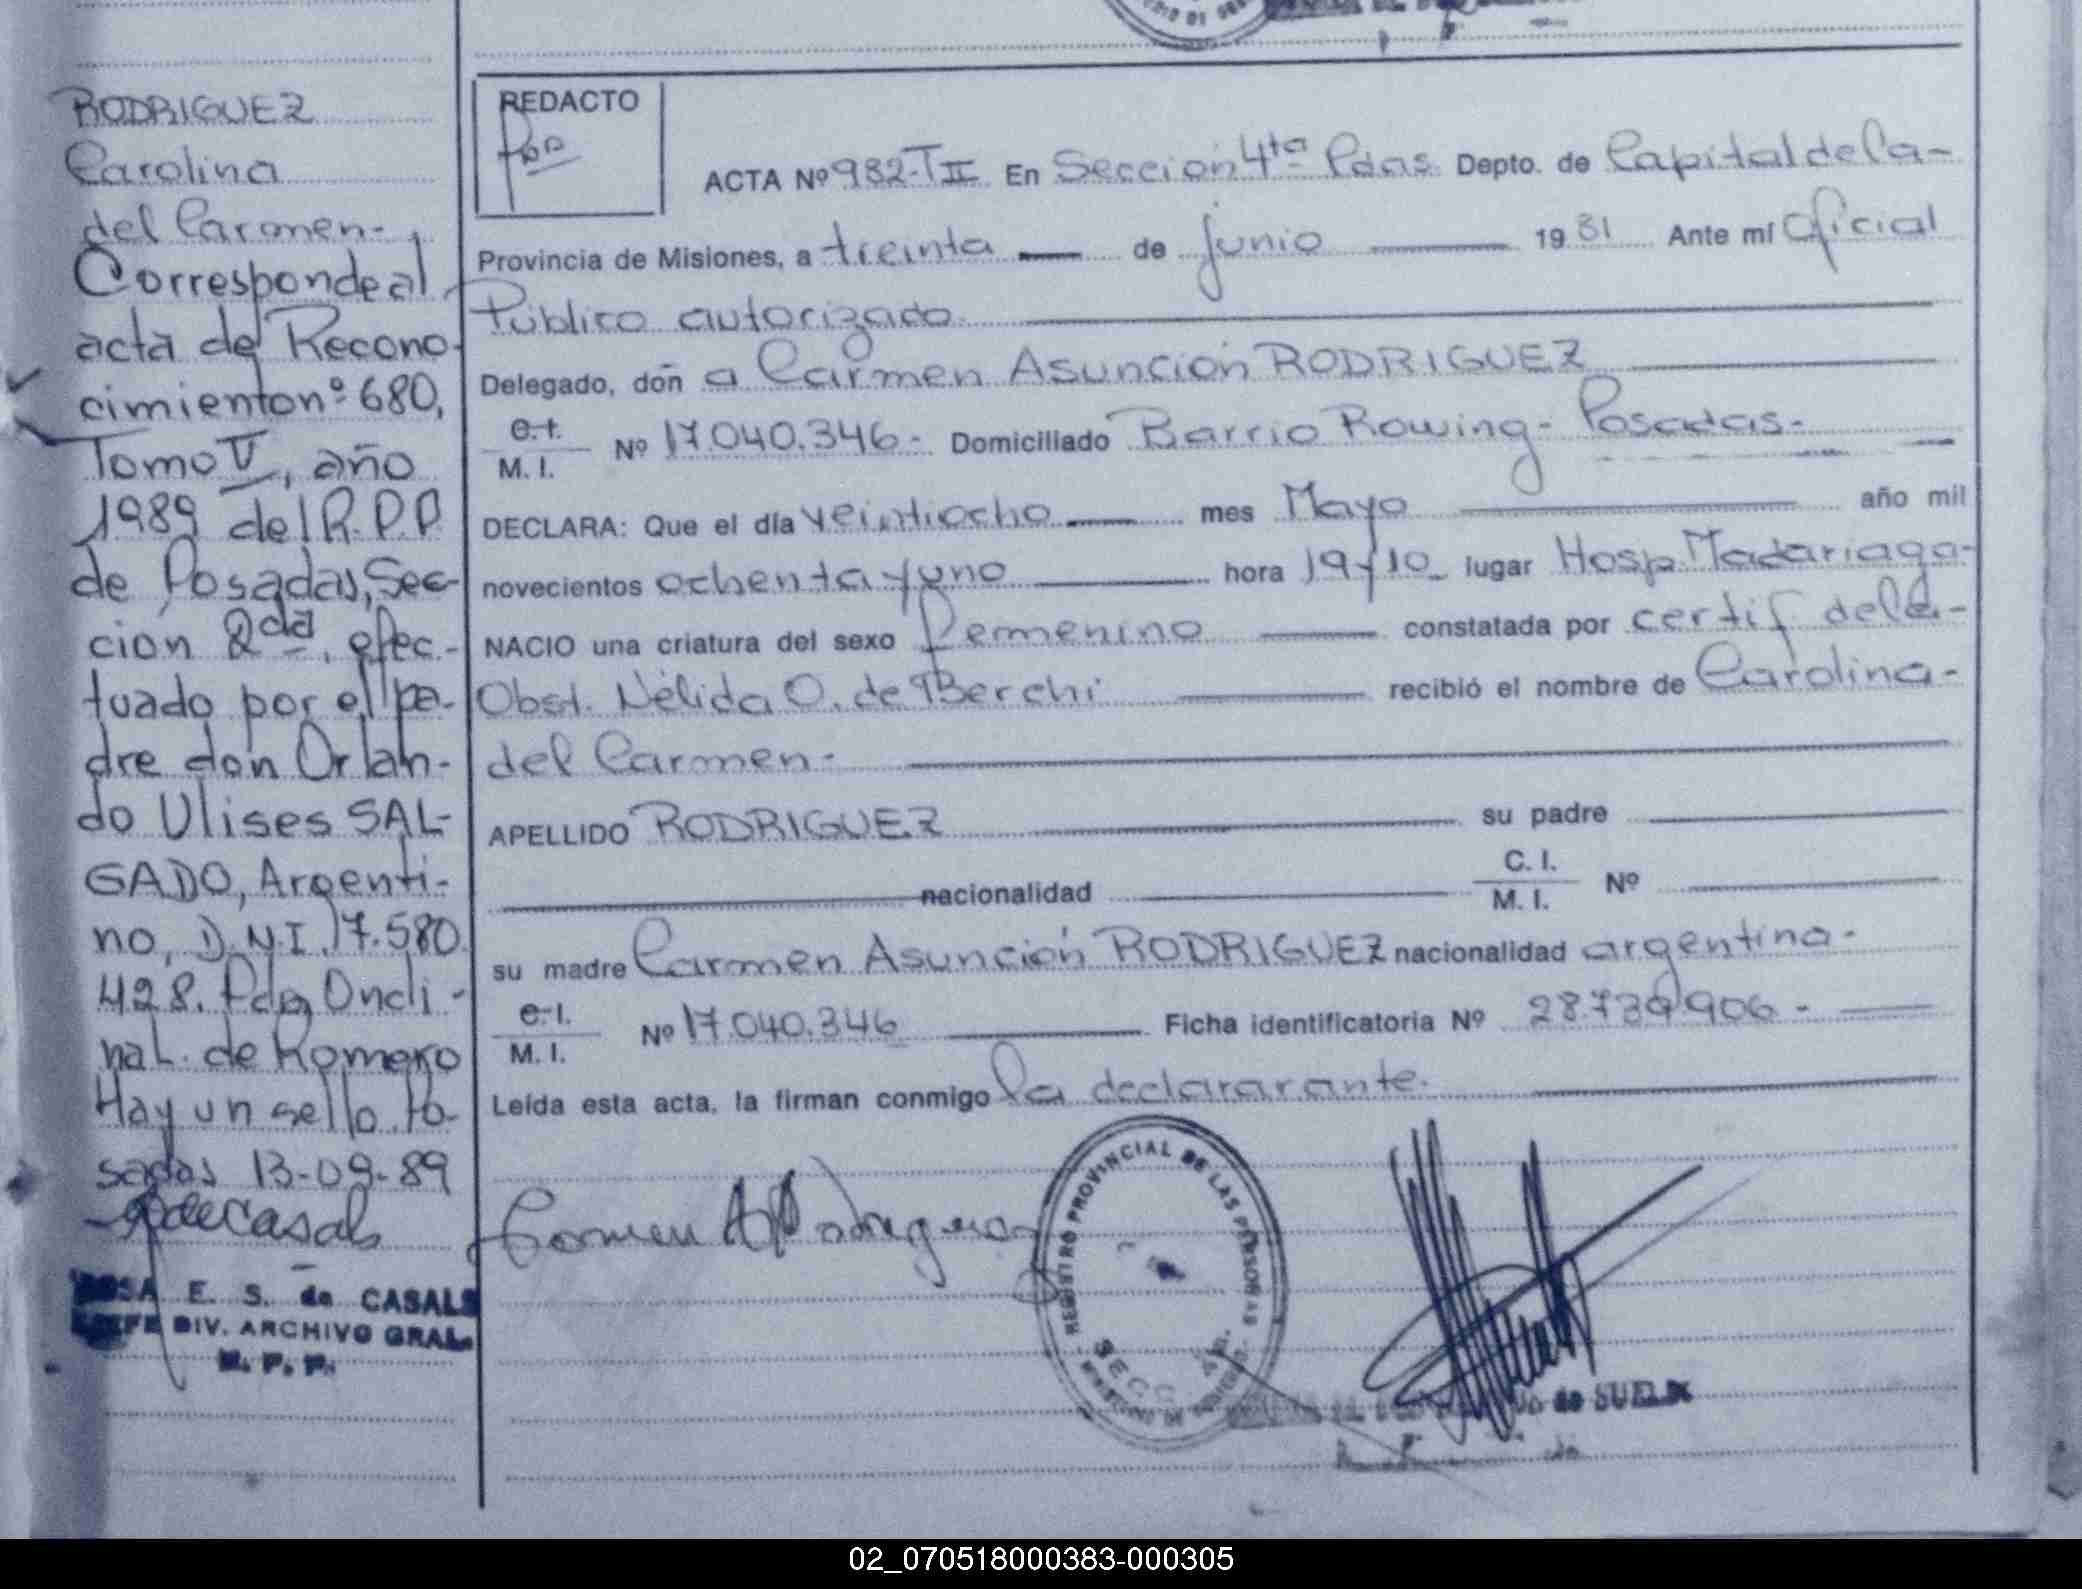 RODRIGUEZ
Carolina
del Carmen-
Corresponde al
acta de Recono-
cimiento nº 680,
Tomo V, año
1989 del R.P.P
de Posadas, Sec-
cion 2da, efec-
tuado por el pa-
dre don Orlan-
do Ulises SAL-
GADO, Argenti-
no, D.N.I. 17.580.
428. Fdo Oncli-
na L. de Romero
Hay un sello. Po-
sadas 13-09-89
E. S. de CASALS
JEFE DIV. ARCHIVO GRAL.
R. P. P.
REDACTO
ACTA Nº 982-TII En Sección 4ta Pdas. Depto. de Capital de la-
Provincia de Misiones, a treinta — de junio — 1981 Ante mí Oficial
Público autorizado.
Delegado, don a Carmen Asunción RODRIGUEZ
C.I.
M. I. Nº 17.040.346- Domiciliado Barrio Rowing- Posadas-
DECLARA: Que el día veintiocho — mes Mayo — año mil
novecientos ochenta y uno — hora 19y10 lugar Hosp. Madariaga-
NACIO una criatura del sexo Femenino — constatada por certif. de la-
Obst. Nélida O. de Berchi — recibió el nombre de Carolina-
del Carmen-
APELLIDO RODRIGUEZ — su padre —
— nacionalidad — C. I.
M. I. Nº —
su madre Carmen Asunción RODRIGUEZ nacionalidad argentina-
C.I.
M. I. Nº 17.040.346 — Ficha identificatoria Nº 28.739.906-
Leída esta acta, la firman conmigo la declararante.
Carmen A Rodriguez
REGISTRO PROVINCIAL DE LAS PERSONAS
SECC. 4
de SUELIX
02_070518000383-000305